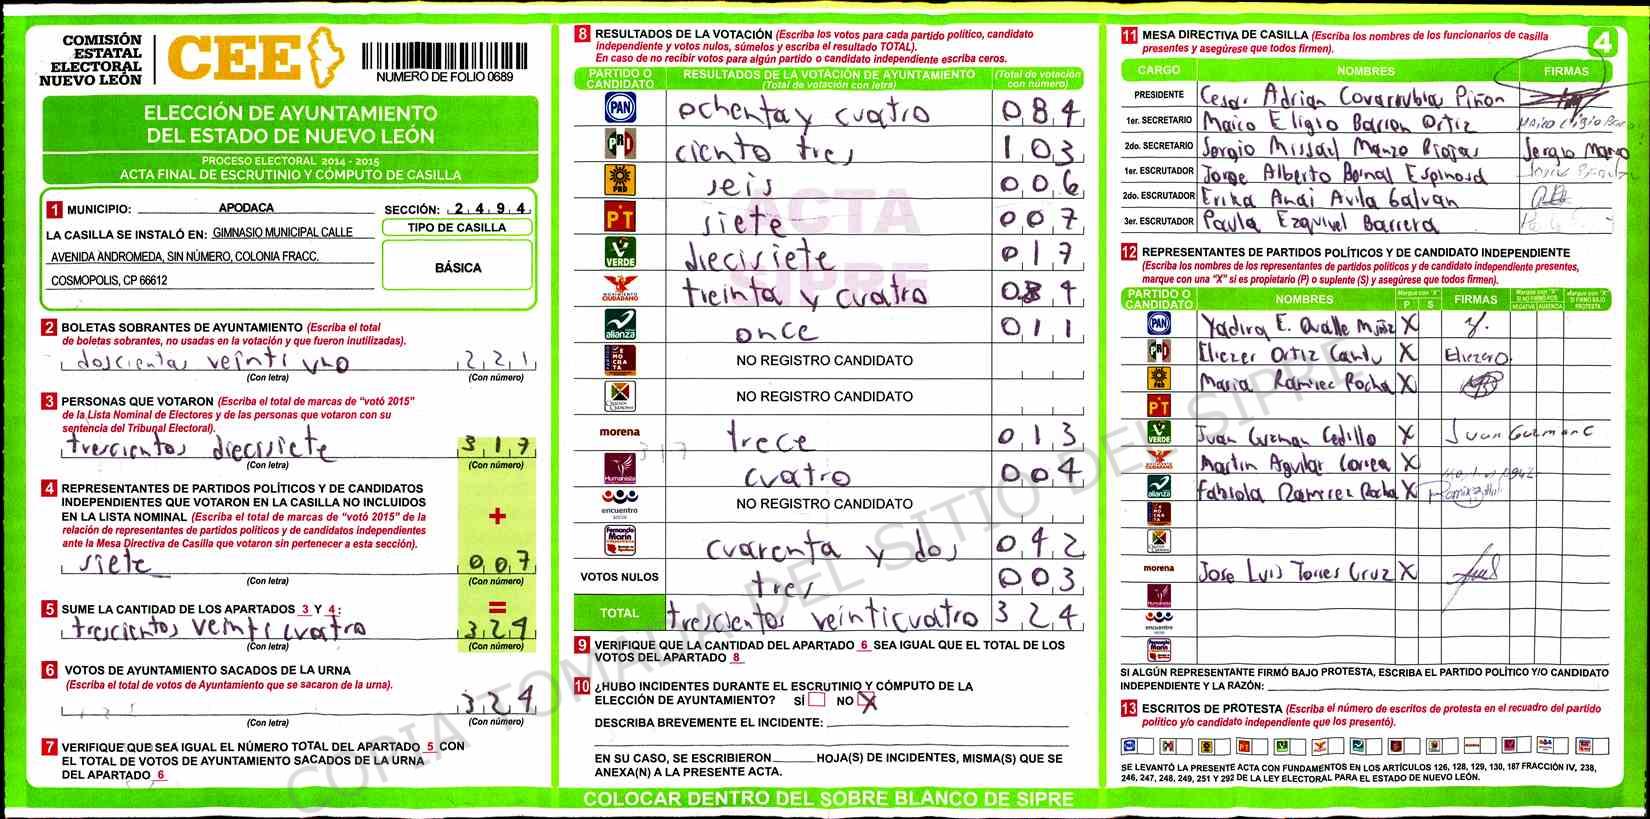 COMISIÓN
ESTATAL
ELECTORAL
NUEVO LEÓN
CEE
NUMERO DE FOLIO 0689
ELECCIÓN DE AYUNTAMIENTO
DEL ESTADO DE NUEVO LEÓN
PROCESO ELECTORAL 2014 - 2015
ACTA FINAL DE ESCRUTINIO Y CÓMPUTO DE CASILLA
1 MUNICIPIO: APODACA SECCIÓN: 2494
LA CASILLA SE INSTALÓ EN: GIMNASIO MUNICIPAL CALLE
AVENIDA ANDROMEDA, SIN NÚMERO, COLONIA FRACC.
COSMOPOLIS, CP 66612
TIPO DE CASILLA
BÁSICA
2 BOLETAS SOBRANTES DE AYUNTAMIENTO (Escriba el total
de boletas sobrantes, no usadas en la votación y que fueron inutilizadas).
doscientas veinti uno 221
(Con letra) (Con número)
3 PERSONAS QUE VOTARON (Escriba el total de marcas de “votó 2015”
de la Lista Nominal de Electores y de las personas que votaron con su
sentencia del Tribunal Electoral).
trescientos diecisiete 317
(Con letra) (Con número)
4 REPRESENTANTES DE PARTIDOS POLÍTICOS Y DE CANDIDATOS
INDEPENDIENTES QUE VOTARON EN LA CASILLA NO INCLUIDOS
EN LA LISTA NOMINAL (Escriba el total de marcas de “votó 2015” de la
relación de representantes de partidos políticos y de candidatos independientes
ante la Mesa Directiva de Casilla que votaron sin pertenecer a esta sección).
+
siete 007
(Con letra) (Con número)
5 SUME LA CANTIDAD DE LOS APARTADOS 3 Y 4: =
trescientos veinti cuatro 324
(Con letra) (Con número)
6 VOTOS DE AYUNTAMIENTO SACADOS DE LA URNA
(Escriba el total de votos de Ayuntamiento que se sacaron de la urna).
324
(Con letra) (Con número)
7 VERIFIQUE QUE SEA IGUAL EL NÚMERO TOTAL DEL APARTADO 5 CON
EL TOTAL DE VOTOS DE AYUNTAMIENTO SACADOS DE LA URNA
DEL APARTADO 6
8 RESULTADOS DE LA VOTACIÓN (Escriba los votos para cada partido político, candidato
independiente y votos nulos, súmelos y escriba el resultado TOTAL).
En caso de no recibir votos para algún partido o candidato independiente escriba ceros.
PARTIDO O CANDIDATO RESULTADOS DE LA VOTACIÓN DE AYUNTAMIENTO (Total de votación con letra) (Total de votación con número)
ACTA
SIPRE
PAN ochenta y cuatro 084
PRD ciento tres 103
PRD seis 006
PT siete 007
VERDE diecisiete 017
MOVIMIENTO CIUDADANO treinta y cuatro 034
alianza once 011
NO REGISTRO CANDIDATO
NO REGISTRO CANDIDATO
morena trece 013
317
Humanista cuatro 004
encuentro social NO REGISTRO CANDIDATO
Fernando Marín cuarenta y dos 042
VOTOS NULOS tres 003
TOTAL trescientos veinticuatro 324
9 VERIFIQUE QUE LA CANTIDAD DEL APARTADO 6 SEA IGUAL QUE EL TOTAL DE LOS
VOTOS DEL APARTADO 8
10 ¿HUBO INCIDENTES DURANTE EL ESCRUTINIO Y CÓMPUTO DE LA
ELECCIÓN DE AYUNTAMIENTO? SÍ NO X
DESCRIBA BREVEMENTE EL INCIDENTE:
EN SU CASO, SE ESCRIBIERON HOJA(S) DE INCIDENTES, MISMA(S) QUE SE
ANEXA(N) A LA PRESENTE ACTA.
COLOCAR DENTRO DEL SOBRE BLANCO DE SIPRE
11 MESA DIRECTIVA DE CASILLA (Escriba los nombres de los funcionarios de casilla
presentes y asegúrese que todos firmen).
4
CARGO NOMBRES FIRMAS
PRESIDENTE Cesar Adrian Covarrubias Piñon
1er. SECRETARIO Marco Eligio Barron Ortiz
2do. SECRETARIO Sergio Missael Manzo Riojas Sergio Manzo
1er. ESCRUTADOR Jorge Alberto Bernal Espinosa
2do. ESCRUTADOR Erika Anai Avila Galvan
3er. ESCRUTADOR Paula Ezquivel Barrera
12 REPRESENTANTES DE PARTIDOS POLÍTICOS Y DE CANDIDATO INDEPENDIENTE
(Escriba los nombres de los representantes de partidos políticos y de candidato independiente presentes,
marque con una “X” si es propietario (P) o suplente (S) y asegúrese que todos firmen).
PARTIDO O CANDIDATO NOMBRES Marque con "X" P S FIRMAS Marque con "X" SI NO FIRMÓ POR: NEGATIVA AUSENCIA Marque con "X" SI FIRMÓ BAJO PROTESTA
PAN Yadira E. Ovalle Muñiz X
Eliezer Ortiz Cantu X Eliezer O.
PRD Maria Ramirez Rocha X
PT
VERDE Juan Guzman Cedillo X Juan Guzman C
Martin Aguilar Correa X
alianza Fabiola Ramirez Rocha X
morena Jose Luis Torres Cruz X
Humanista
encuentro social
SI ALGÚN REPRESENTANTE FIRMÓ BAJO PROTESTA, ESCRIBA EL PARTIDO POLÍTICO Y/O CANDIDATO
INDEPENDIENTE Y LA RAZÓN:
13 ESCRITOS DE PROTESTA (Escriba el número de escritos de protesta en el recuadro del partido
político y/o candidato independiente que los presentó).
SE LEVANTÓ LA PRESENTE ACTA CON FUNDAMENTOS EN LOS ARTÍCULOS 126, 128, 129, 130, 187 FRACCIÓN IV, 238,
246, 247, 248, 249, 251 Y 292 DE LA LEY ELECTORAL PARA EL ESTADO DE NUEVO LEÓN.
COPIA TOMADA DEL SITIO DEL SIPRE